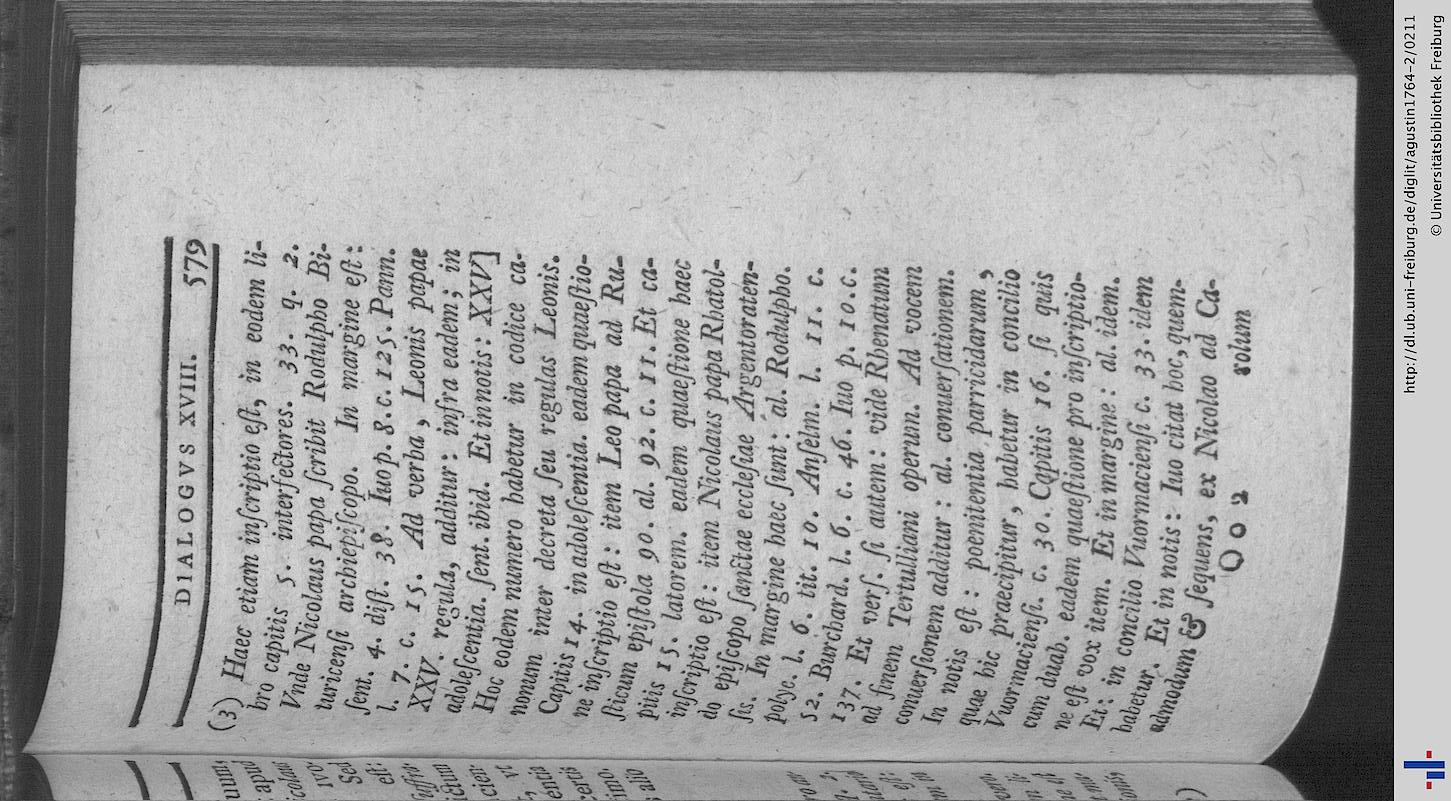 DIALOGVS XVIII. 579
(3) Haec etiam inſcriptio eſt, in eodem li-
bro capitis 5. interfectores. 33. q. 2.
Vnde Nicolaus papa ſcribit Rodulpho Bi-
turicenſi archiepiſcopo. In margine eſt:
ſent. 4. diſt. 38. Iuo p. 8. c. 125. Pann.
l. 7. c. 15. Ad verba, Leonis papae
XXV. regula, additur: infra eadem; in
adoleſcentia. ſent. ibid. Et in notis: XXV]
Hoc eodem numero habetur in codice ca-
nonum inter decreta ſeu regulas Leonis.
Capitis 14. in adoleſcentia. eadem quaeſtio-
ne inſcriptio eſt: item Leo papa ad Ru-
ſticum epiſtola 90. al. 92. c. 11. Et ca-
pitis 15. latorem. eadem quaeſtione haec
inſcriptio eſt: item Nicolaus papa Rhatol-
do epiſcopo ſanctae eccleſiae Argentoraten-
ſis. In margine haec ſunt: al. Rodulpho.
polyc. l. 6. tit. 10. Anſelm. l. 11. c.
52. Burchard. l. 6. c. 46. Iuo p. 10. c.
137. Et verſ. ſi autem: vide Rhenatum
ad finem Tertulliani operum. Ad vocem
conuerſionem additur: al. conuerſationem.
In notis eſt: poenitentia parricidarum,
quae hic praecipitur, habetur in concilio
Vuormacienſi. c. 30. Capitis 16. ſi quis
cum duab. eadem quaeſtione pro inſcriptio-
ne eſt vox item. Et in margine: al. idem.
Et: in concilio Vuormacienſi c. 33. idem
habetur. Et in notis: Iuo citat hoc, quem-
admodum & ſequens, ex Nicolao ad Ca-
Q o 2 rolum
uum,
apud
icolai
ivo
Sed
eſt:
ictum
cien-
, vt
entia
certis
imo.
alio
http://dl.ub.uni-freiburg.de/diglit/agustin1764-2/0211
© Universitätsbibliothek Freiburg